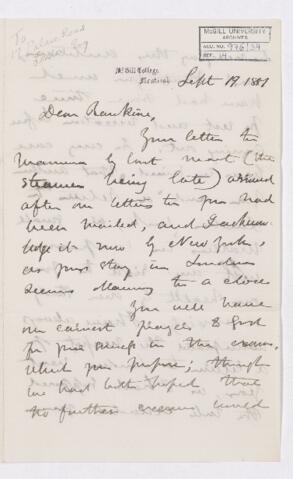 To
Road
McGILL UNIVERSITY
ARCHIVES
ACC. NO. 976/34
REF. 14
McGill College
Montreal
Sept 19. 1881
Dear Rankine,
Your letter to
Mamma by last mail (the
steamer being late) arrived
after our letters to you had
been mailed, and I acknow-
ledge it now by New York,
as your stay in London
seems drawing to a close
You will have
our earnest prayers to God
for your success in the exam.
which you propose; though
we had both hoped that
no further exams would